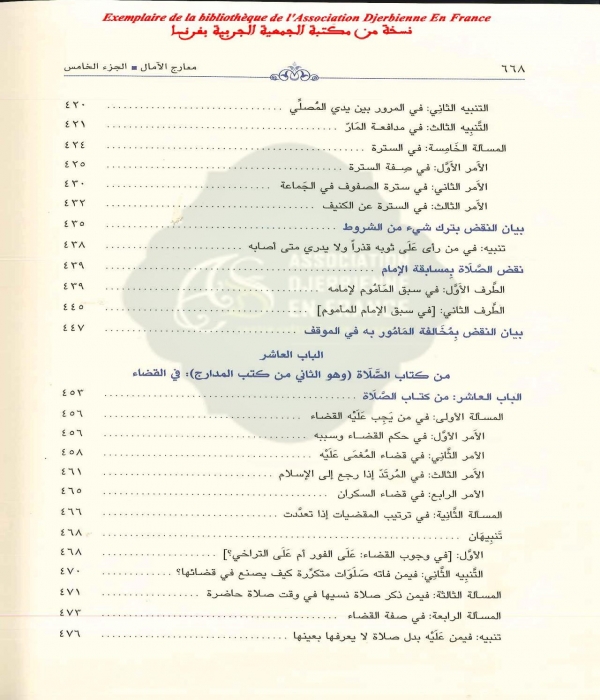 Exemplaire de la bibliothèque de l'Association Djerbienne En France
نسخة من مكتبة الجمعية الجربية بفرنسا
٦٦٨ معارج الآمال ■ الجزء الخامس
التنبيه الثاني: في المرور بين يدي المُصلِّي ٤٢٠
التَّنبِيه الثالث: في مدافعة المَارّ ٤٢١
المسالة الخَامِسة: في السترة ٤٢٤
الأمر الأَوَّل: في صِفة السترة ٤٢٥
الأمر الثاني: في سترة الصفوف في الجَماعة ٤٣٠
الأمر الثالث: في السترة عن الكنيف ٤٣٢
بيان النقض بترك شيء من الشروط ٤٣٥
تنبيه: في من رأى عَلَى ثوبه قذراً ولا يدري متى أصابه ٤٣٨
نقض الصَّلَاة بِمسابقة الإمام ٤٣٩
الطَّرف الأَوَّل: في سبق المَأمُوم لإمامه ٤٣٩
الطَّرف الثاني: [في سبق الإمام للماموم] ٤٤٥
بيان النقض بِمُخَالفة المَامُور به في الموقف ٤٤٧
الباب العاشر
من كتاب الصَّلَاة (وهو الثاني من كتب المدارج): في القضاء
الباب العاشر: من كتاب الصَّلَاة ٤٥٣
المسالة الأولى: في من يَجِب عَلَيْه القضاء ٤٥٦
الأمر الأوَّل: في حكم القضاء وسببه ٤٥٦
الأمر الثَّانِي: في قضاء المُغمَى عَلَيْه ٤٥٨
الأمر الثالث: في المُرتَدّ إذا رجع إلى الإسلام ٤٦١
الأمر الرابع: في قضاء السكران ٤٦٥
المسألة الثَّانِية: في ترتيب المقضيات إذا تعدَّدت ٤٦٦
تَنبِيهَان ٤٦٨
الأوَّل: [في وجوب القضاء: عَلَى الفور أم عَلَى التراخي؟] ٤٦٨
التَّنبِيه الثَّانِي: فيمن فاته صَلَوَات متكرِّرة كيف يصنع في قضائها؟ ٤٧٠
المسالة الثالثة: فيمن ذكر صلاة نسيها في وقت صلاة حاضرة ٤٧١
المسالة الرابعة: في صفة القضاء ٤٧٣
تنبيه: فيمن عَلَيْه بدل صلاة لا يعرفها بعينها ٤٧٦
ASSOCIATION
DJERBIENNE
EN FRANCE